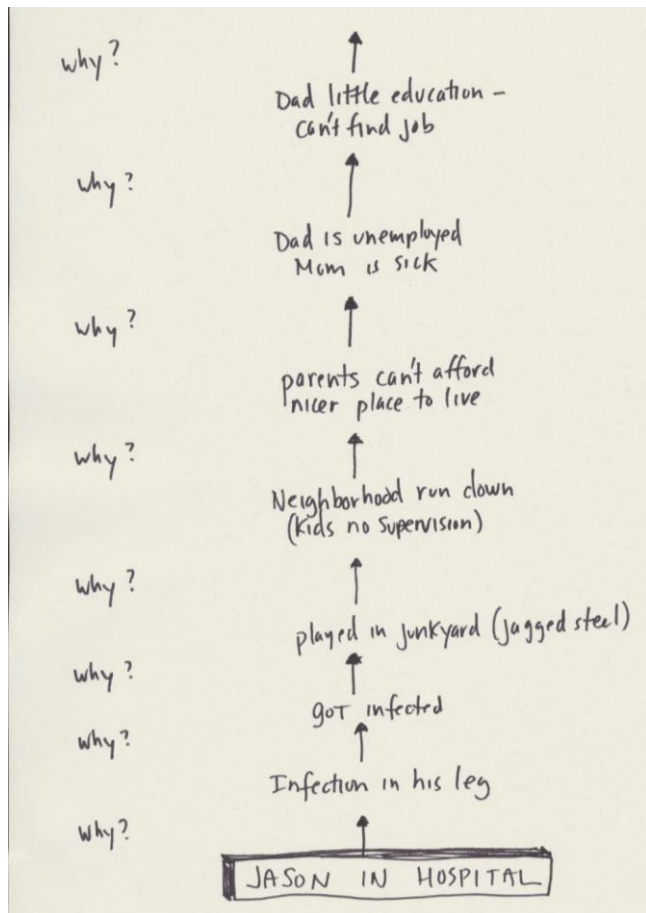 why?
Dad little education –
can't find job
why?
Dad is unemployed
Mom is sick
why?
parents can't afford
nicer place to live
why?
Neighborhood run down
(kids no supervision)
why?
played in junkyard (jagged steel)
why?
got infected
why?
Infection in his leg
why?
JASON IN HOSPITAL